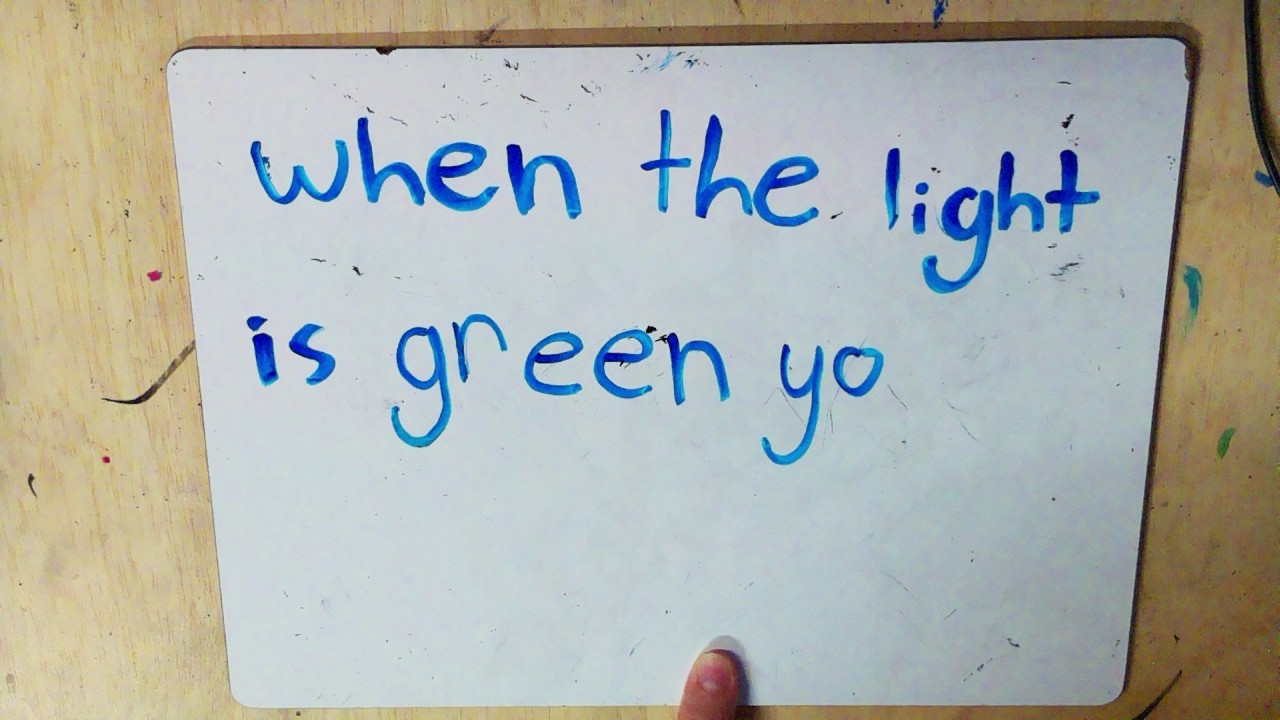 when the light
is green yo